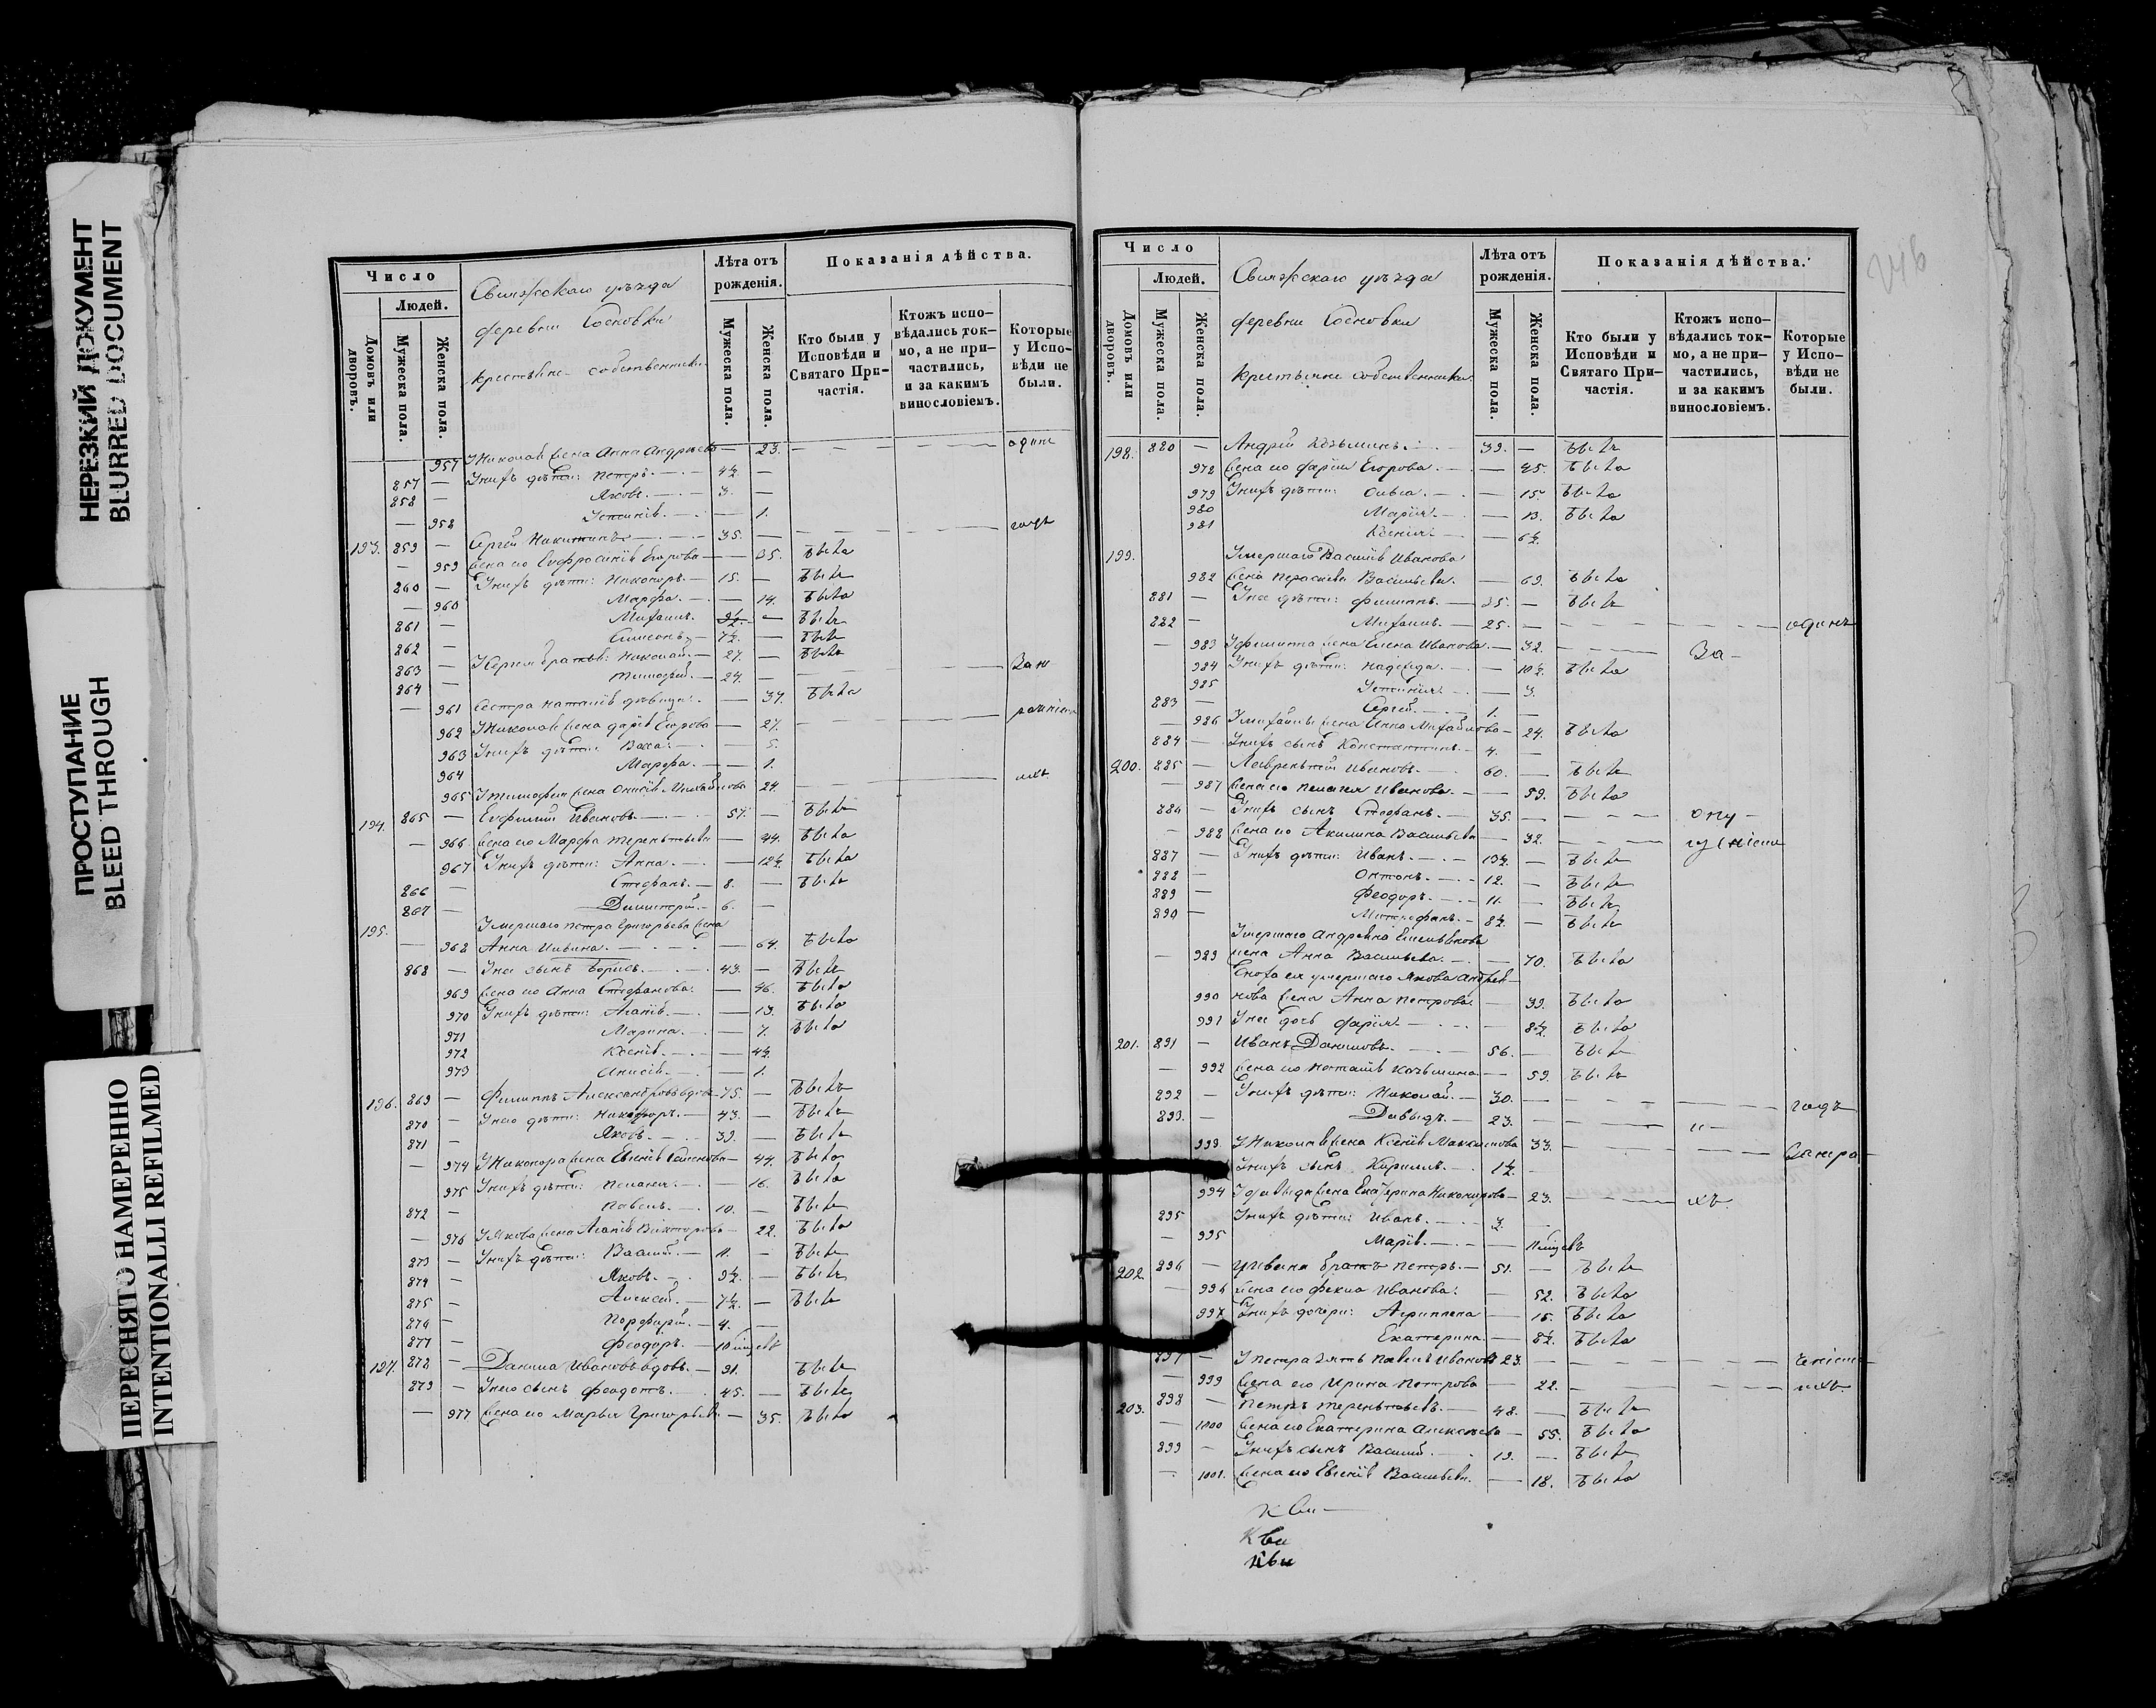 НЕРЕЗКИЙ ДОКУМЕНТ
BLURRED DOCUMENT
ПРОСТУПАНИЕ
BLEED THROUGH
ПЕРЕСНЯТО НАМЕРЕННО
INTENTIONALLI REFILMED
Число
Людей.
Домовъ или дворовъ.
Мужеска пола.
Женска пола.
Свіяжскаго уѣзда
деревни Сосновки
крестьяне собственники
Лѣта отъ рожденія.
Мужеска пола.
Женска пола.
Показанія дѣйства.
Кто были у Исповѣди и Святаго Причастія.
Ктожъ исповѣдались токмо, а не причастились, и за какимъ винословіемъ.
Которые у Исповѣди не были.
957 У Николая жена Анна Андреева — 23.
857 — У нихъ дѣти: Петръ. — 4½ —
858 — Яковъ. — 3. —
— 958 — 1.
193. 859 — Сергѣй Никитинъ — 35. —
— 959 Жена его Евфросинія Егорова — 35. Была
860 — У нихъ дѣти: Никоноръ. — 15. — Былъ
— 960 Марфа. — 14. Была
861 — Михаилъ. 9½ — Былъ
862 — Симеонъ — 7½ — Былъ
863 — Николай. — 27. —
864 — Тимофей. — 24. —
— 961 Сестра Наталія дѣвица. — 37. Была
962 У Николая жена Дарія Егорова — 27.
963 У нихъ дѣти: — 5.
964 Марфа. — 1.
965 У Тимофея жена Онисія Михайлова 24.
194. 865 — Евфимий Ивановъ. — 57. — Былъ
— 966 Жена его Марфа Терентьева — 44. Была
967 У нихъ дѣти: Анна. — 12½ Была
866 — Стефанъ. — 8. — Былъ
867 — Димитрий. — 6. —
195. Умершаго Петра Григорьева жена
— 968 Анна Ильина. — 64. Была
868 — У нея сынъ Борисъ. — 43. — Былъ
969 Жена его Анна Стефанова. — 46. Была
970 У нихъ дѣти: Агафія. — 13. Была
971 Марина. — 7. Была
972 Ксенія. — 4½
973 Анисія. — 1.
196. 869 — Филиппъ Александровъ вдовъ 75. — Былъ
870 — У него дѣти: Никифоръ. — 43. — Былъ
871 — Яковъ. — 39. — Былъ
— 974 Былa
975 У нихъ дѣти: Пелагея. — 16. Была
872 — Павелъ. — 10. — Былъ
— 976 У Якова жена Агафія Викторова — 22. Была
873 — У нихъ дѣти: Василій. — 11. — Былъ
874 — Яковъ. — 9½ — Былъ
875 — Алексей. — 7½ — Былъ
876 — Порфирій. — 4. —
877 — Феодоръ. — 10 мѣсяц.
197. 878 — Данила Ивановъ вдовъ. — 91. Былъ
879 — У него сынъ Феодотъ. — 45. — Былъ
— 977 Жена его Марья Григорьева — 35. Была
Число
Людей.
Домовъ или дворовъ.
Мужеска пола.
Женска пола.
Свіяжскаго уѣзда
деревни Сосновки
крестьяне собственники
Лѣта отъ рожденія.
Мужеска пола.
Женска пола.
Показанія дѣйства.
Кто были у Исповѣди и Святаго Причастія.
Ктожъ исповѣдались токмо, а не причастились, и за какимъ винословіемъ.
Которые у Исповѣди не были.
198. 880 — Андрей Козьминъ. — 39. — Былъ
978 Жена его Дарія Егорова. — 45. Была
979 У нихъ дѣти: Ольга. — 15. Была
980 Марія. — 13. Была
981 Ксенія. — 6½
199. Умершаго Василія Иванова
982 Жена Параскева Васильева. — 69. Была
881 — У нея дѣти: Филиппъ. — 35. — Былъ
882 — Михаилъ. — 25. — одинъ
— 983 У Филиппа жена Елена Иванова. — 32. За-
984 У нихъ дѣти: Надежда. — 10½ Была
985 — 3.
883 — Сергей. — 1. —
— 986 У Михаила жена Анна Михайлова — 24. Была
884 — У нихъ сынъ Константинъ. — 4. —
200. 885 — Лаврентій Ивановъ. — 60. — Былъ
— 987 Жена его Пелагея Иванова. — 59. Была
886 — У нихъ сынъ Стефанъ. — 35. — отлу-
— 988 Жена его Акилина Васильева — 32.
887 — У нихъ дѣти: Иванъ. — 13½ — Былъ
888 — Антонъ. — 12. — Былъ
889 — Феодоръ. — 11. — Былъ
890 — Митрофанъ. — 8½ — Былъ
— 989 жена Анна Васильева. — 70. Была
Сноха ея умершаго Якова Андрея-
990 нова жена Анна Петрова. — 39. Была
991 У нея дочь Дарія. — 8½ Была
201. 891 — Иванъ Даниловъ. — 56. — Былъ
— 992 Жена его Наталія Козьмина — 59.
892 — У нихъ дѣти: Николай. — 30. — годъ
893. — Давыдъ. — 23. —
993. У Николая жена Ксенія Максимова 33.
У нихъ сынъ Кириллъ. — 1½ —
994 У Давыда жена Екатерина Никонорова — 23.
895 У нихъ дѣти: Иванъ. — 3. —
— 995 Марія. — 11 мѣсяцевъ
202. 896 — У Ивана братъ Петръ. — 51. — Былъ
— 996 Жена его Фекла Иванова. — 52. Была
997 У нихъ дочери: Агриппена — 15. Была
Екатерина. — 8½ Была
897 — У Петра зять Павелъ Ивановъ 23. —
— 999 Жена его Ирина Петрова — 22.
203. 898 — Петръ Терентьевъ. — 48. — Былъ
— 1000 Жена его Екатерина Алексѣева — 55. Была
899 — У нихъ сынъ Василій. — 19. — Былъ
— 1001. Жена его Евгенія Васильева. — 18. Была